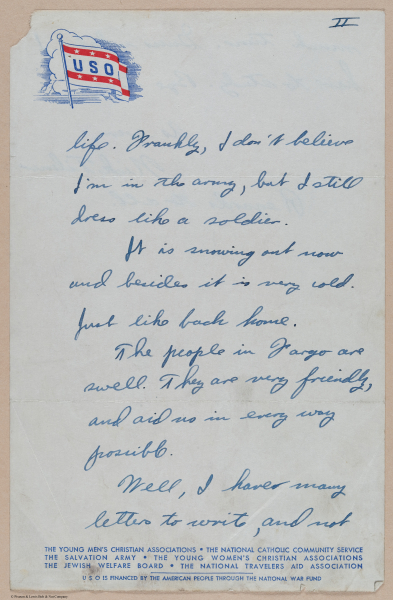 II
USO
life. Frankly, I don't believe
I'm in the army, but I still
dress like a soldier.
It is snowing out now
and besides it is very cold.
Just like back home.
The people in Fargo are
swell. They are very friendly,
and aid us in every way
possible.
Well, I have many
letters to write, and not
THE YOUNG MEN'S CHRISTIAN ASSOCIATIONS • THE NATIONAL CATHOLIC COMMUNITY SERVICE
THE SALVATION ARMY • THE YOUNG WOMEN'S CHRISTIAN ASSOCIATIONS
THE JEWISH WELFARE BOARD • THE NATIONAL TRAVELERS AID ASSOCIATION
USO IS FINANCED BY THE AMERICAN PEOPLE THROUGH THE NATIONAL WAR FUND